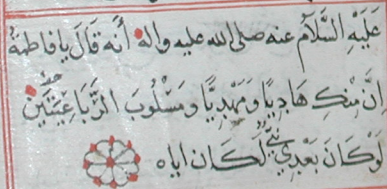 عَلَيْهِ السَّلَامُ عنه صلى الله عليه واله أنه قَالَ يا فاطمة
اِنَّ مِنْكِ هَادِيًا وَمَهْدِيًّا وَمَسْلُوبَ الرَّبَاعِيَتَيْنِ
لَوْ كَانَ بَعْدِي نَبِيٌّ لَكَانَ اياه